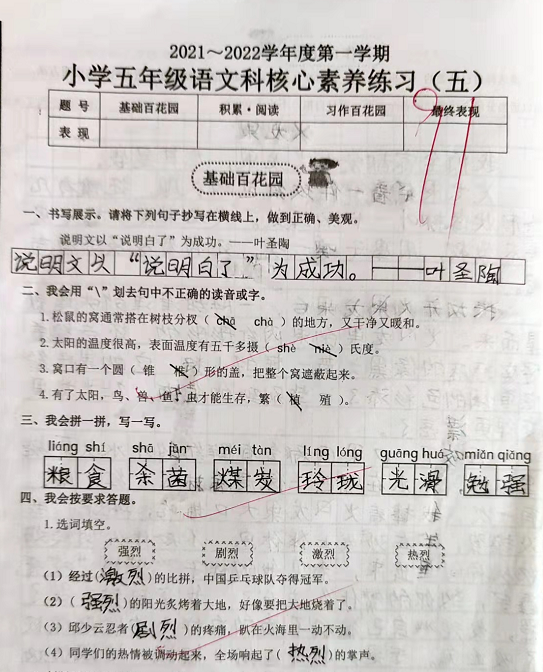 2021～2022学年度第一学期
小学五年级语文科核心素养练习（五）
题号 基础百花园 积累·阅读 习作百花园 最终表现
表现
基础百花园
一、书写展示。请将下列句子抄写在横线上，做到正确、美观。
说明文以“说明白了”为成功。——叶圣陶
说明文以“说明白了”为成功。——叶圣陶
二、我会用“\”划去句中不正确的读音或字。
1.松鼠的窝通常搭在树枝分杈（chā chà）的地方，又干净又暖和。
2.太阳的温度很高，表面温度有五千多摄（shè niè）氏度。
3.窝口有一个圆（锥 椎）形的盖，把整个窝遮蔽起来。
4.有了太阳，鸟、兽、鱼、虫才能生存，繁（植 殖）。
三、我会拼一拼，写一写。
liáng shí shā jùn méi tàn líng lóng guāng huá miǎn qiǎng
粮食 杀菌 煤炭 玲珑 光滑 勉强
四、我会按要求答题。
1.选词填空。
强烈 剧烈 激烈 热烈
（1）经过(激烈)的比拼，中国乒乓球队夺得冠军。
（2）(强烈)的阳光炙烤着大地，好像要把大地烧着了。
（3）邱少云忍者(剧烈)的疼痛，趴在火海里一动不动。
（4）同学们的热情被调动起来，全场响起了(热烈)的掌声。